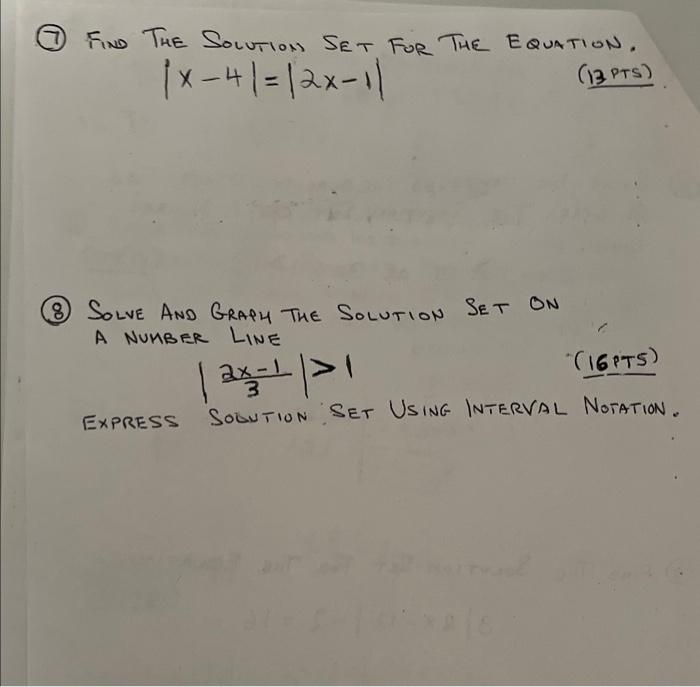 ⑦ FIND THE SOLUTION SET FOR THE EQUATION.
|x-4|=|2x-1| (13 PTS)
⑧ SOLVE AND GRAPH THE SOLUTION SET ON
A NUMBER LINE
|(2x-1)/3|>1 (16 PTS)
EXPRESS SOLUTION SET USING INTERVAL NOTATION.